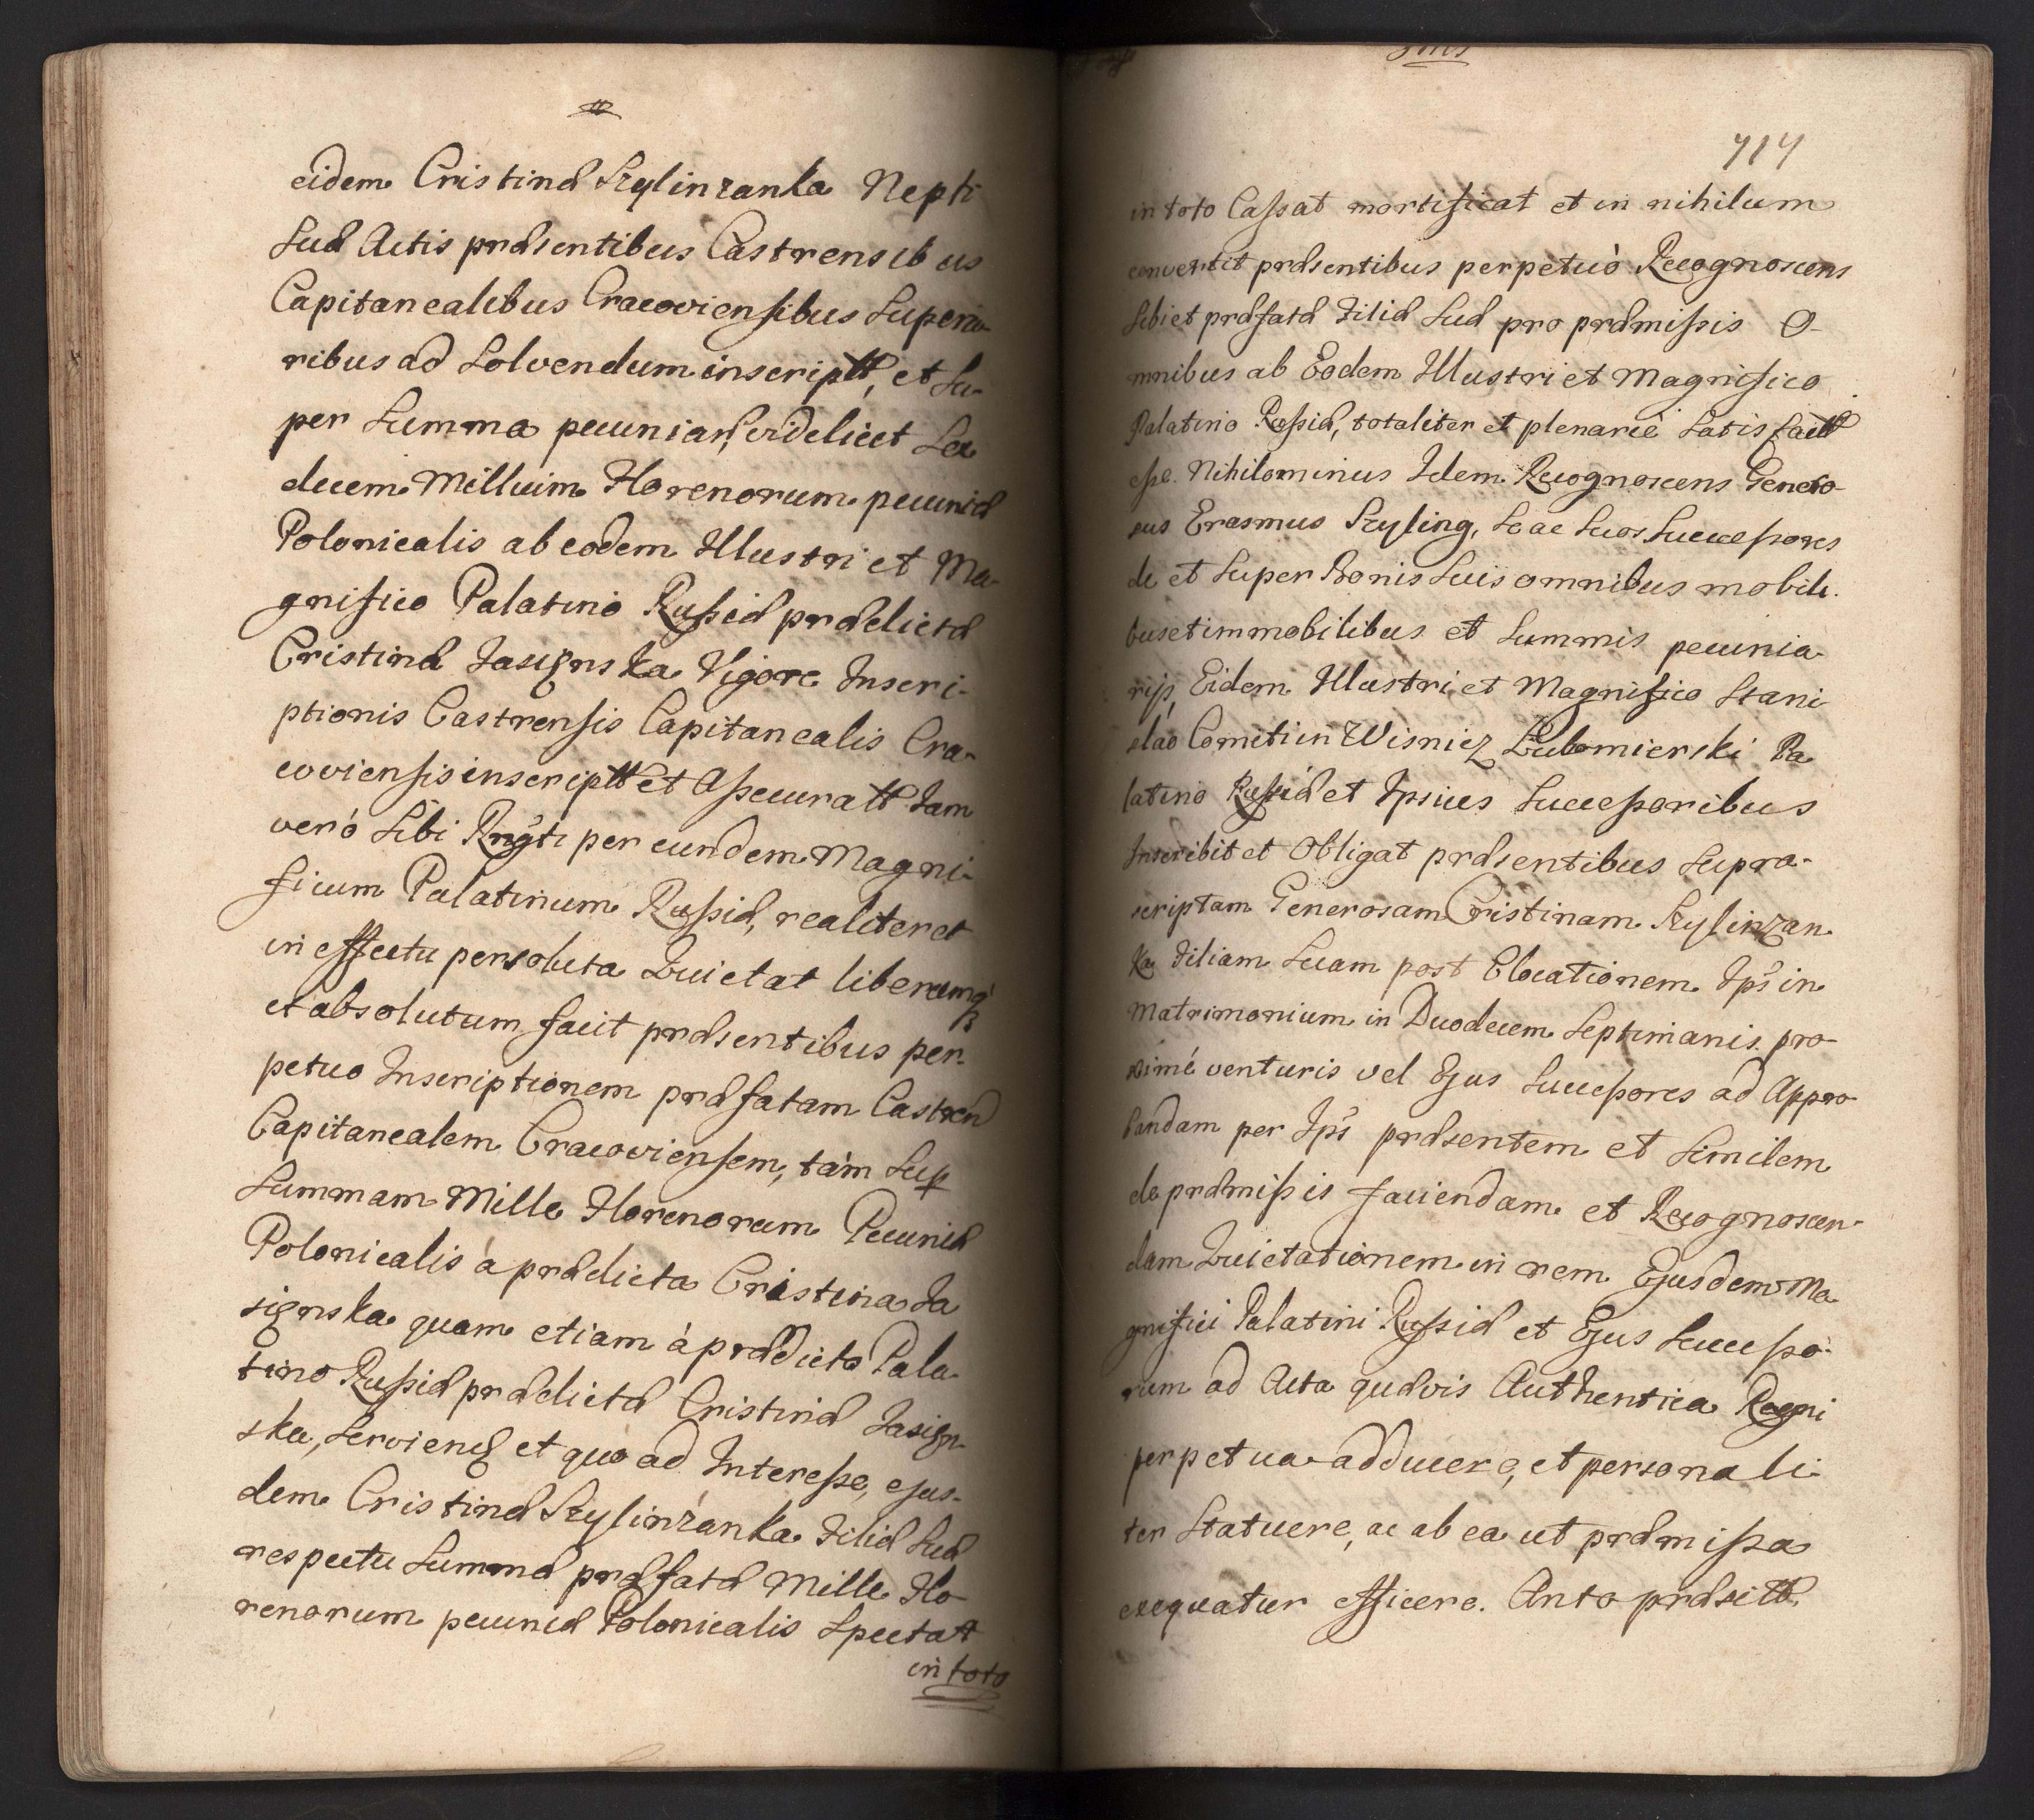 eidem Cristinæ Szylinzanka Nepti
Suæ Actis præsentibus Castrensibus
Capitanealibus Cracoviensibus Superio-
ribus ad Solvendum inscriptt, et Su-
per Summa pecuniar, videlicet Se
decem Millium Florenorum pecuniæ
Polonicalis ab eodem Illustri et Ma-
gnifico Palatino Russiæ prædictæ
Cristinæ Jasignska Vigore Inscri-
ptionis Castrensis Capitanealis Cra-
coviensis inscriptt et Assecuratt Jam
verò Sibi Rngti per eundem Magni-
ficum Palatinum Russiæ, realiter et
in effectu persoluta Quietat liberumq
et absolutum facit præsentibus per-
petuo Inscriptionem præfatam Castren
Capitanealem Cracoviensem, tàm Sup
Summam Mille Florenorum Pecuniæ
Polonicalis à prædicta Cristina Ja
signska quam etiam à prædicto Pala-
tino Russiæ prædictæ Cristinæ Jasign-
ska, Servien et quo ad Interesse, ejus-
dem Cristinæ Szylinzanka Filiæ Suæ
respectu Summæ præfatæ Mille Flo-
renorum pecuniæ Polonicalis Spectatt
in toto
714
in toto Cassat mortificat et in nihilum
convertit præsentibus perpetuò Recognoscens
Sibi et præfatæ Filiæ Suæ pro præmissis O-
mnibus ab Eodem Illustri et Magnifico
Palatino Russiæ, totaliter et plenariè Satisfactt
esse. Nihilominus Idem Recognoscens Genero-
sus Erasmus Szyling, Se ac Suos Successores
de et Super Bonis Suis omnibus mobili-
bus et immobilibus et Summis pecunia-
rijs, Eidem Illustri et Magnifico Stani
slao Comiti in Wisnicz Lubomierski Pa
latino Russiæ et Ipsius Successoribus
Inscribit et Obligat præsentibus Supra-
scriptam Generosam Cristinam Szylinzan
ka Filiam Suam post Elocationem Ips in
Matrimonium in Duodecem Septimanis pro-
ximé venturis vel Ejus Successores ad Appro-
bandam per Ips præsentem et Similem
de præmissis faciendam et Recognoscen-
dam Quietationem in rem Ejusdem Ma
gnifici Palatini Russiæ et Ejus Successo-
rum ad Acta quævis Authentica Regni
perpetua adducere, et personali-
ter Statuere, ac ab ea ut præmissa
exequatur efficere. Anto præsitt.